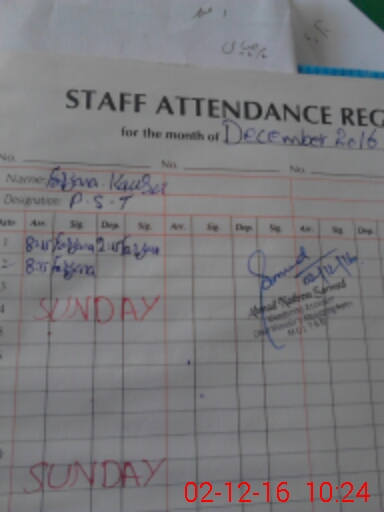 STAFF ATTENDANCE REG
for the month of December 2016
No. No. No.
Name: Farzana Kausar
Designation: P.S.T
Date Arr. Sig. Dep. Sig. Arr. Sig. Dep. Sig. Arr. Sig. Dep.
1 8:15 Farzana 2:15 Farzana
2 8:15 Farzana
02/12/16
3
4 SUNDAY
Ahmad Nadeem Sarmad
5
SUNDAY
02-12-16 10:24